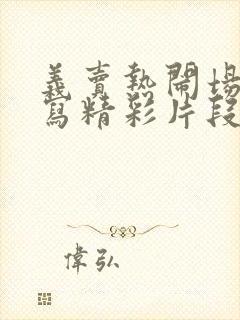 義賣熱鬧場
寫精彩片段
偉弘